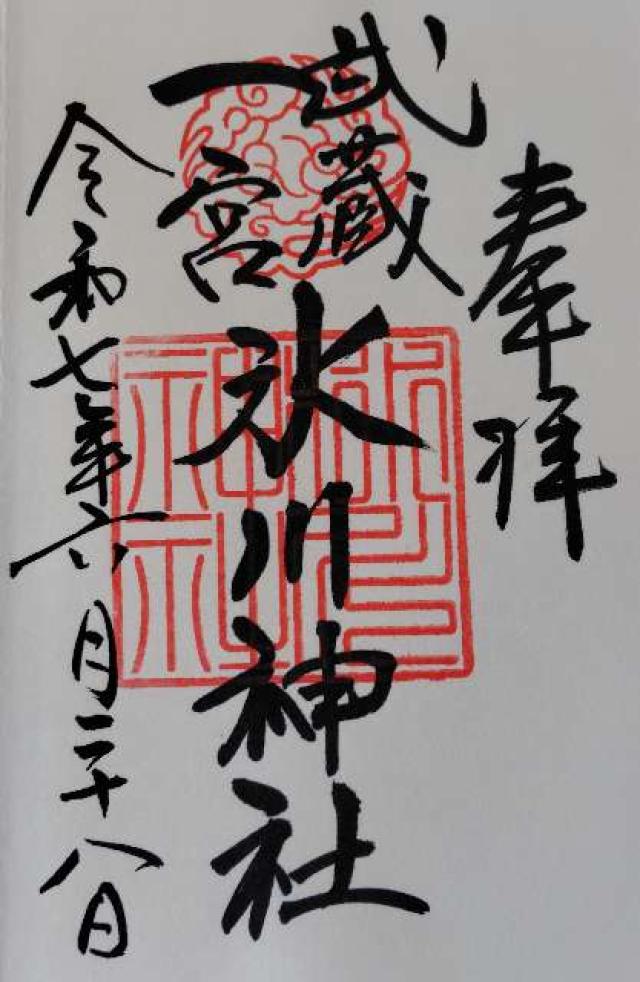 奉拝
武蔵
一宮
氷川神社
令和七年六月二十八日